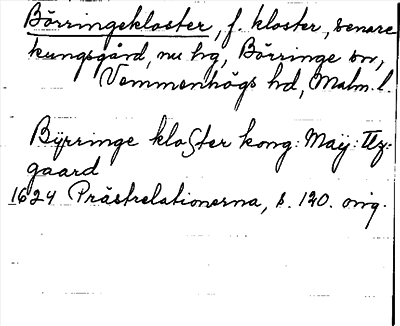 Börringekloster, f. kloster, senare
kungsgård, nu hg, Börringe sn,
Vemmenhögs hd, Malm. l.
Byrringe kloster kong: Maÿ: Ey-
gaard
1624 Prästrelationerna, s. 120. orig.